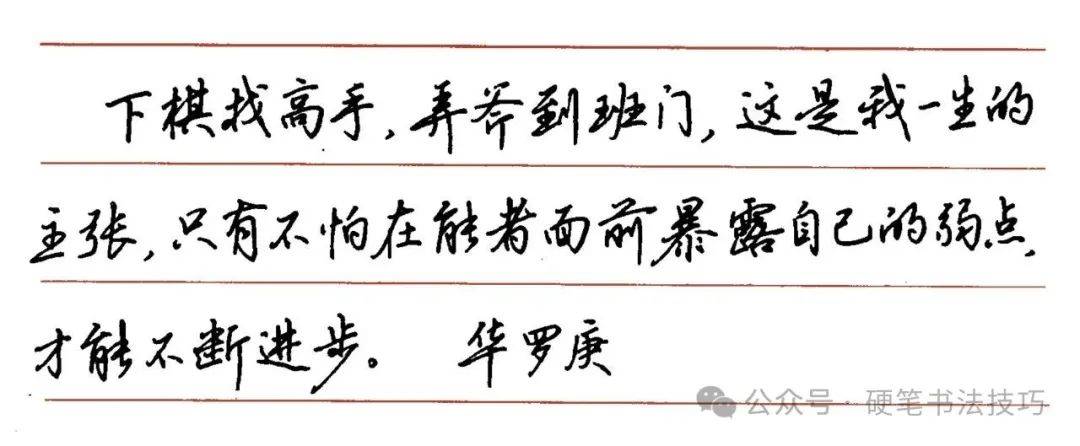 下棋找高手,弄斧到班门,这是我一生的
主张,只有不怕在能者面前暴露自己的弱点,
才能不断进步。 华罗庚
公众号·硬笔书法技巧